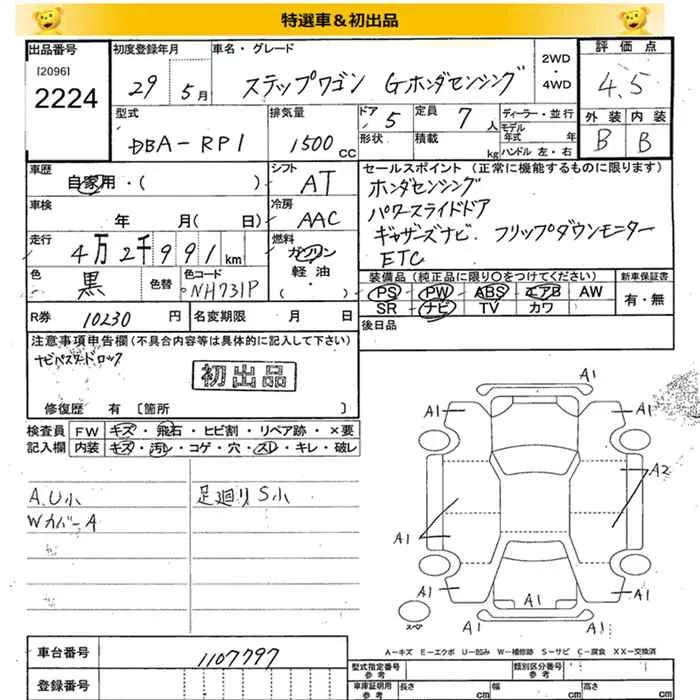 特選車&初出品
出品番号
[2096]
2224
初度登録年月
29 5月
車名・グレード
ステップワゴン Gホンダセンシング
2WD
・
4WD
評価点
4.5
型式
DBA-RP1
排気量
1500 CC
ドア 5
形状
定員 7 人
積載 kg
ディーラー・並行
モデル年式 年
ハンドル 左・右
外装 内装
B B
車歴
自家用・( )
シフト
AT
セールスポイント(正常に機能するものに限ります)
ホンダセンシング
パワースライドドア
ギャザーズナビ. フリップダウンモニター
ETC
車検
年 月( 日)
冷房
AAC
走行
4万2千991km
燃料
ガソリン
軽油・
( )
色
黒
色替
色コード
NH731P
装備品(純正品に限り○をつけてください)
PS PW ABS エアB AW
SR ナビ TV カワ
新車保証書
有・無
R券 10230 円
名変期限 月 日
後日品
注意事項申告欄(不具合内容等は具体的に記入して下さい)
ナビパスワードロック
初出品
修復歴 有 [箇所 ]
検査員
記入欄
FW キズ・飛石・ヒビ割・リペア跡・×要
内装 キズ・汚レ・コゲ・穴・スレ・キレ・破レ
A,U小
WカバーA
足廻りS小
A1
A1
A1
A1
A2
A1
A1
A1
A1
A1
スペア
A-キズ E-エクボ U-凹み W-補修跡 S-サビ C-腐食 XX-交換済
車台番号
1107797
登録番号
型式指定番号
参考
類別区分番号
参考
車庫証明用
参考
長さ cm
幅 cm
高さ cm